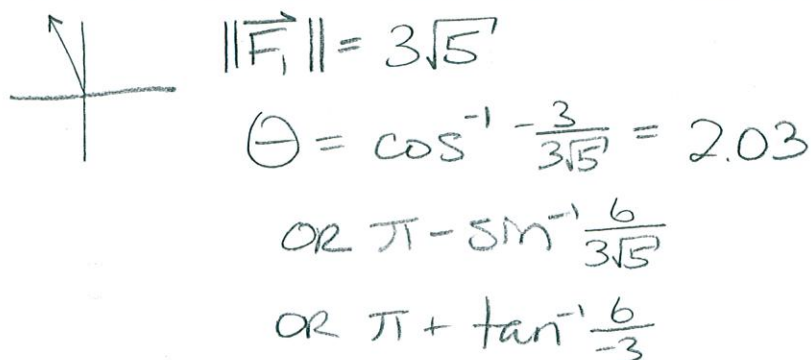 ‖F₁→‖ = 3√5
Θ = cos⁻¹ -3/(3√5) = 2.03
OR π - sin⁻¹ 6/(3√5)
OR π + tan⁻¹ 6/-3